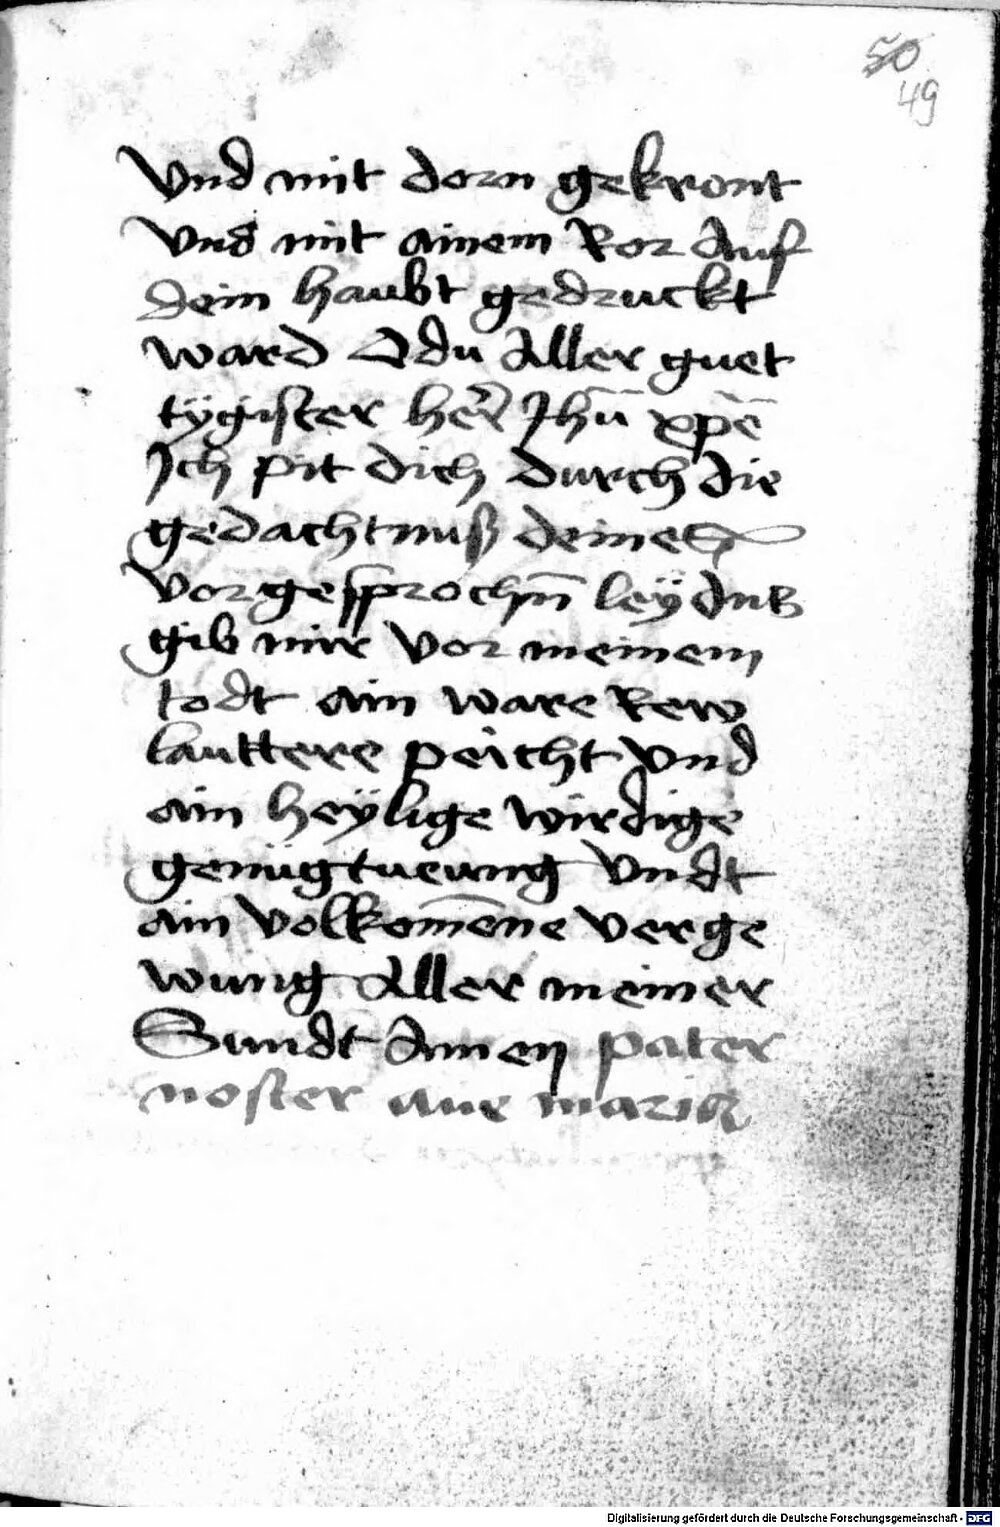 50
49
Vnd mit dorn gekront
Vnd mit ainem Ror Auf
dein haubt gedruckt
ward O du Aller guet
tÿgister her̃ Jhũ xp̄ē
Ich pit dich durch die
gedachtnuß deines
vorgesprochñ leÿdnß
gib mir vor meinem
todt ain ware Rew
lauttere peicht vnd
ain heÿlige wirdige
genugtueung vndt
ain volkom̄ene verge
wung Aller meiner
Sundt Amen pater
noster aue maria
Digitalisierung gefördert durch die Deutsche Forschungsgemeinschaft - DFG